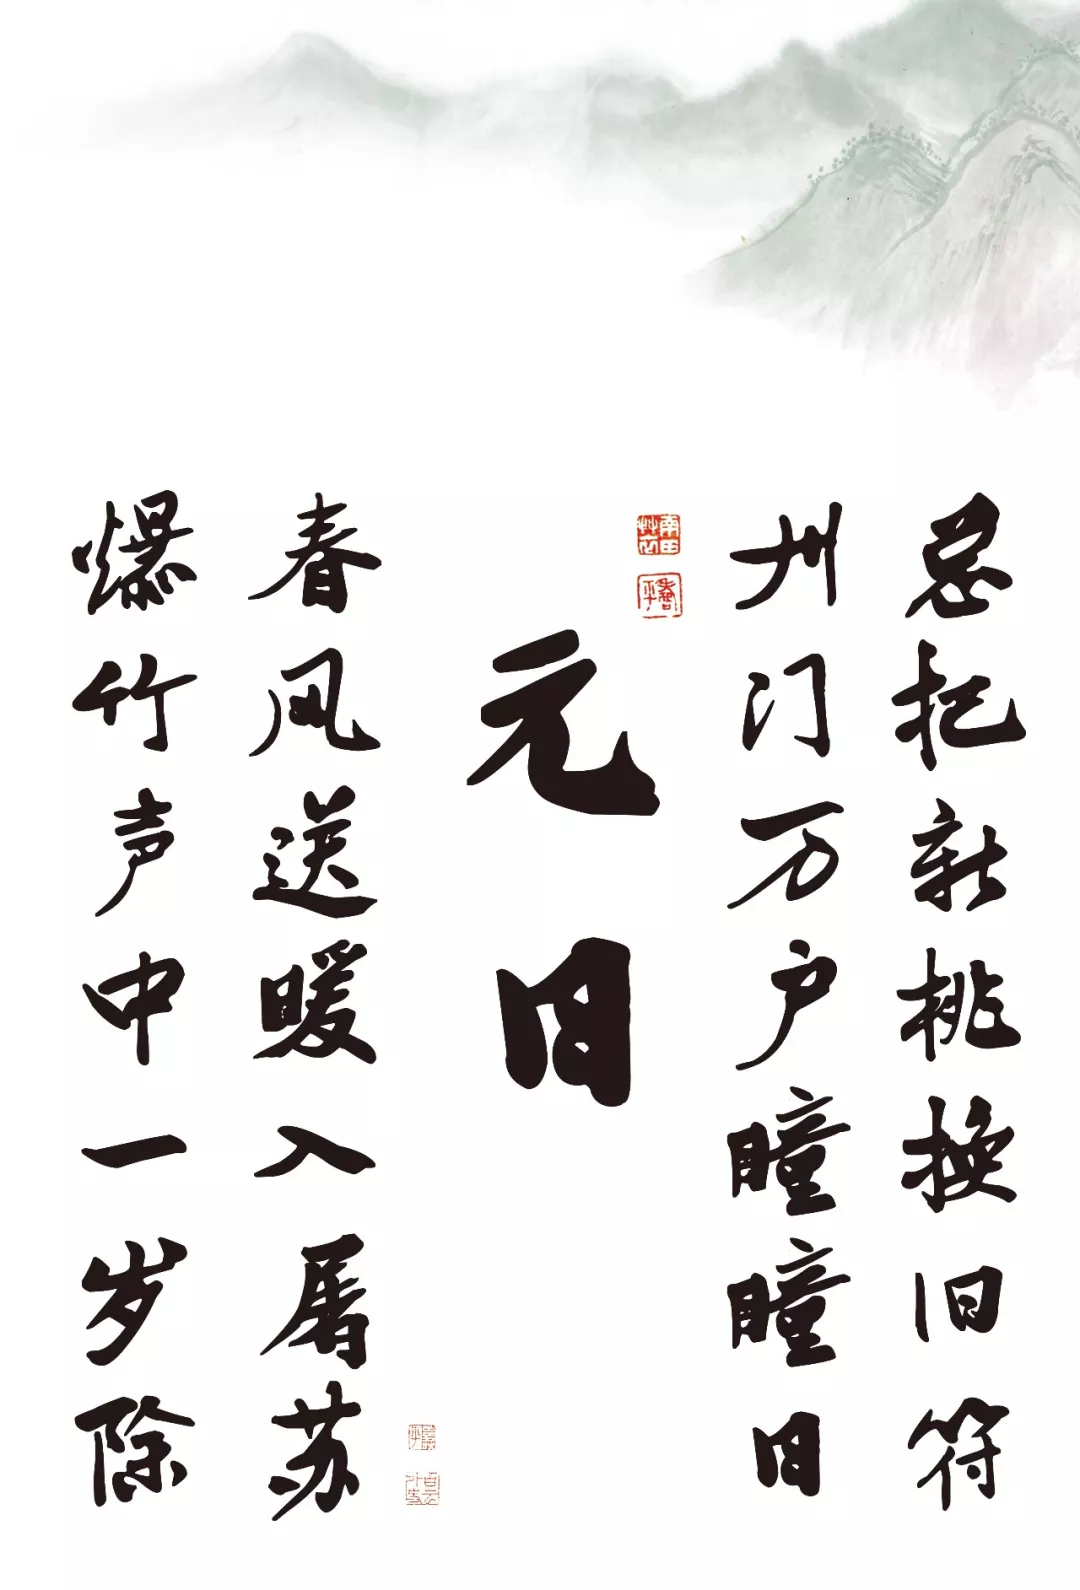 爆竹声中一岁除
春风送暖入屠苏
元日
州门万户瞳瞳日
总把新桃换旧符